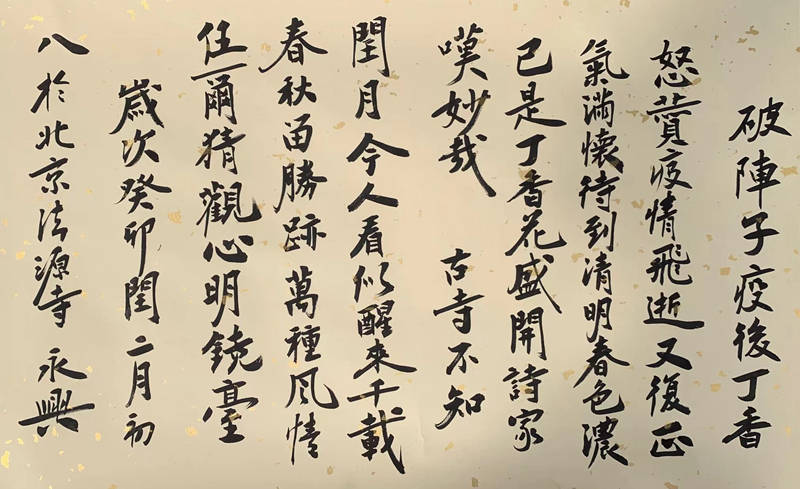 破陣子疫後丁香
怒蕢疫情飛逝又復正
氣滿懷待到清明春色濃
已是丁香花盛開詩家
嘆妙哉 古寺不知
閏月今人看似醒來千載
春秋留勝跡萬種風情
任爾猜觀心明鏡臺
歲次癸卯閏二月初
八於北京法源寺 永興